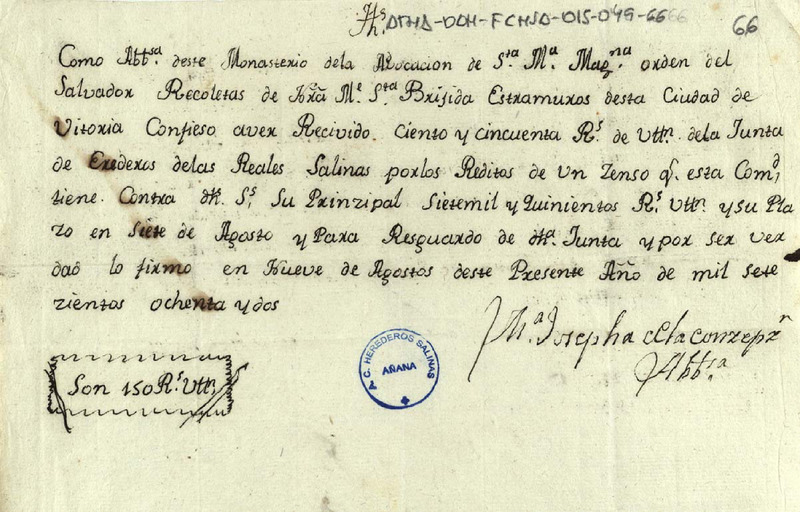 Jhs. ATHA-DAH-FCHSA-015-049-66
66
Como Abbsa. deste Monasterio dela Advocacion de Sta. Ma. Magna. orden del
Salvador Recoletas de Nrã Me. Sta Brijida Estramuros desta Ciudad de
Vitoria Confieso aver Recivido Ciento y cincuenta Rs. de Vttn. dela Junta
de Erederos delas Reales Salinas por los Reditos de un Zenso q. esta Comd.
tiene. Contra dhs. Ss. Su Prinzipal Sietemil y Quinientos Rs. Vttn. y su Pla
zo en siete de Agosto y Para Resguardo de dha. Junta y por ser ver
dad lo firmo en Nueve de Agostos deste Presente Año de mil sete
zientos ochenta y dos
Ma. Josepha de la Conzepzn
Abbsa.
Son 150 Rs. Vttn.
A.C. HEREDEROS SALINAS
AÑANA